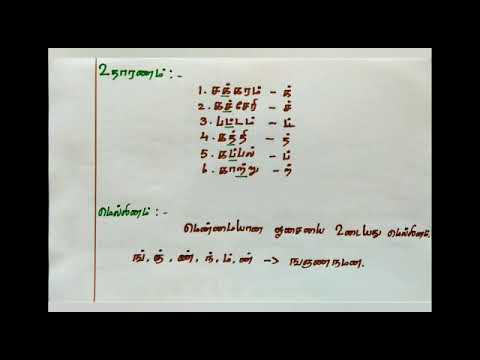 உதாரணம் :-
1. சக்கரம் - க்
2. கச்சேரி - ச்
3. பட்டம் - ட்
4. கத்தி - த்
5. கப்பல் - ப்
6. காற்று - ற்
மெல்லினம் :-
மென்மையான ஓசையை உடையது மெல்லினம்.
ங், ஞ், ண், ந், ம், ன் -> ஙஞணநமன.